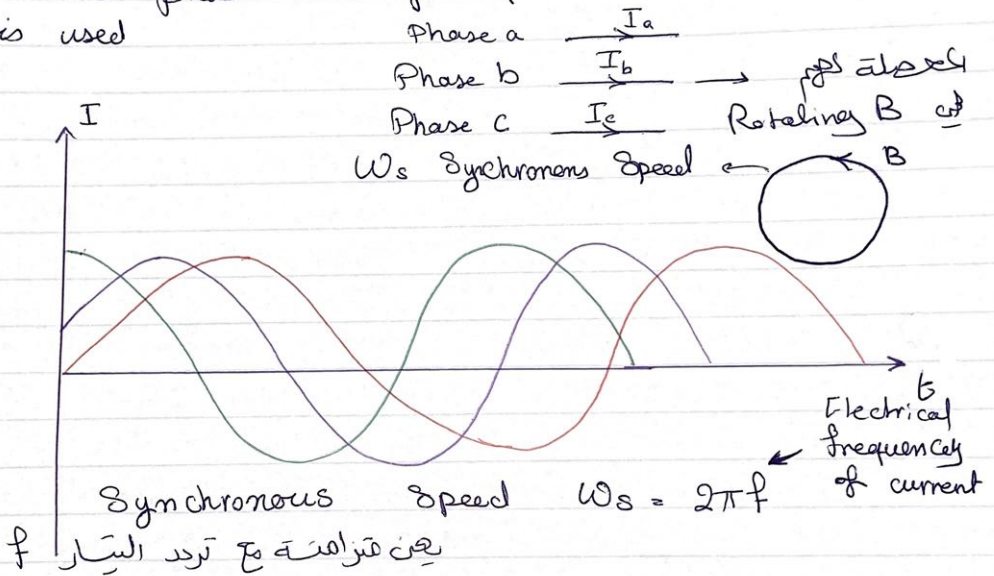 is used
Phase a Ia
Phase b Ib → محصلة لهم
Phase c Ic Rotating B
Ws Synchronous Speed ← B
I
t
Electrical
frequency
of current
Synchronous Speed Ws = 2πf
يعني متزامنة مع تردد التيار f